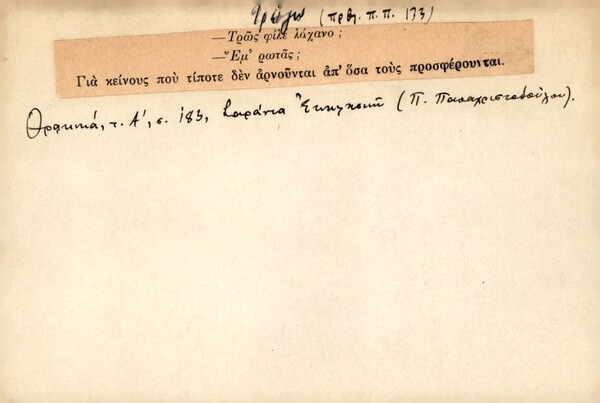 τρώγω (πρβ. π.π. 173)
—Τρῶς φίλε λάχανο;
—Ἔμ' ρωτᾶς;
Γιὰ κείνους ποὺ τίποτε δὲν ἀρνοῦνται ἀπ' ὅσα τοὺς προσφέρουνται.
Θρακικά, τ. Α', σ. 183, Σαράντα Ἐκκλησιῶν (Π. Παπαχριστοδούλου).